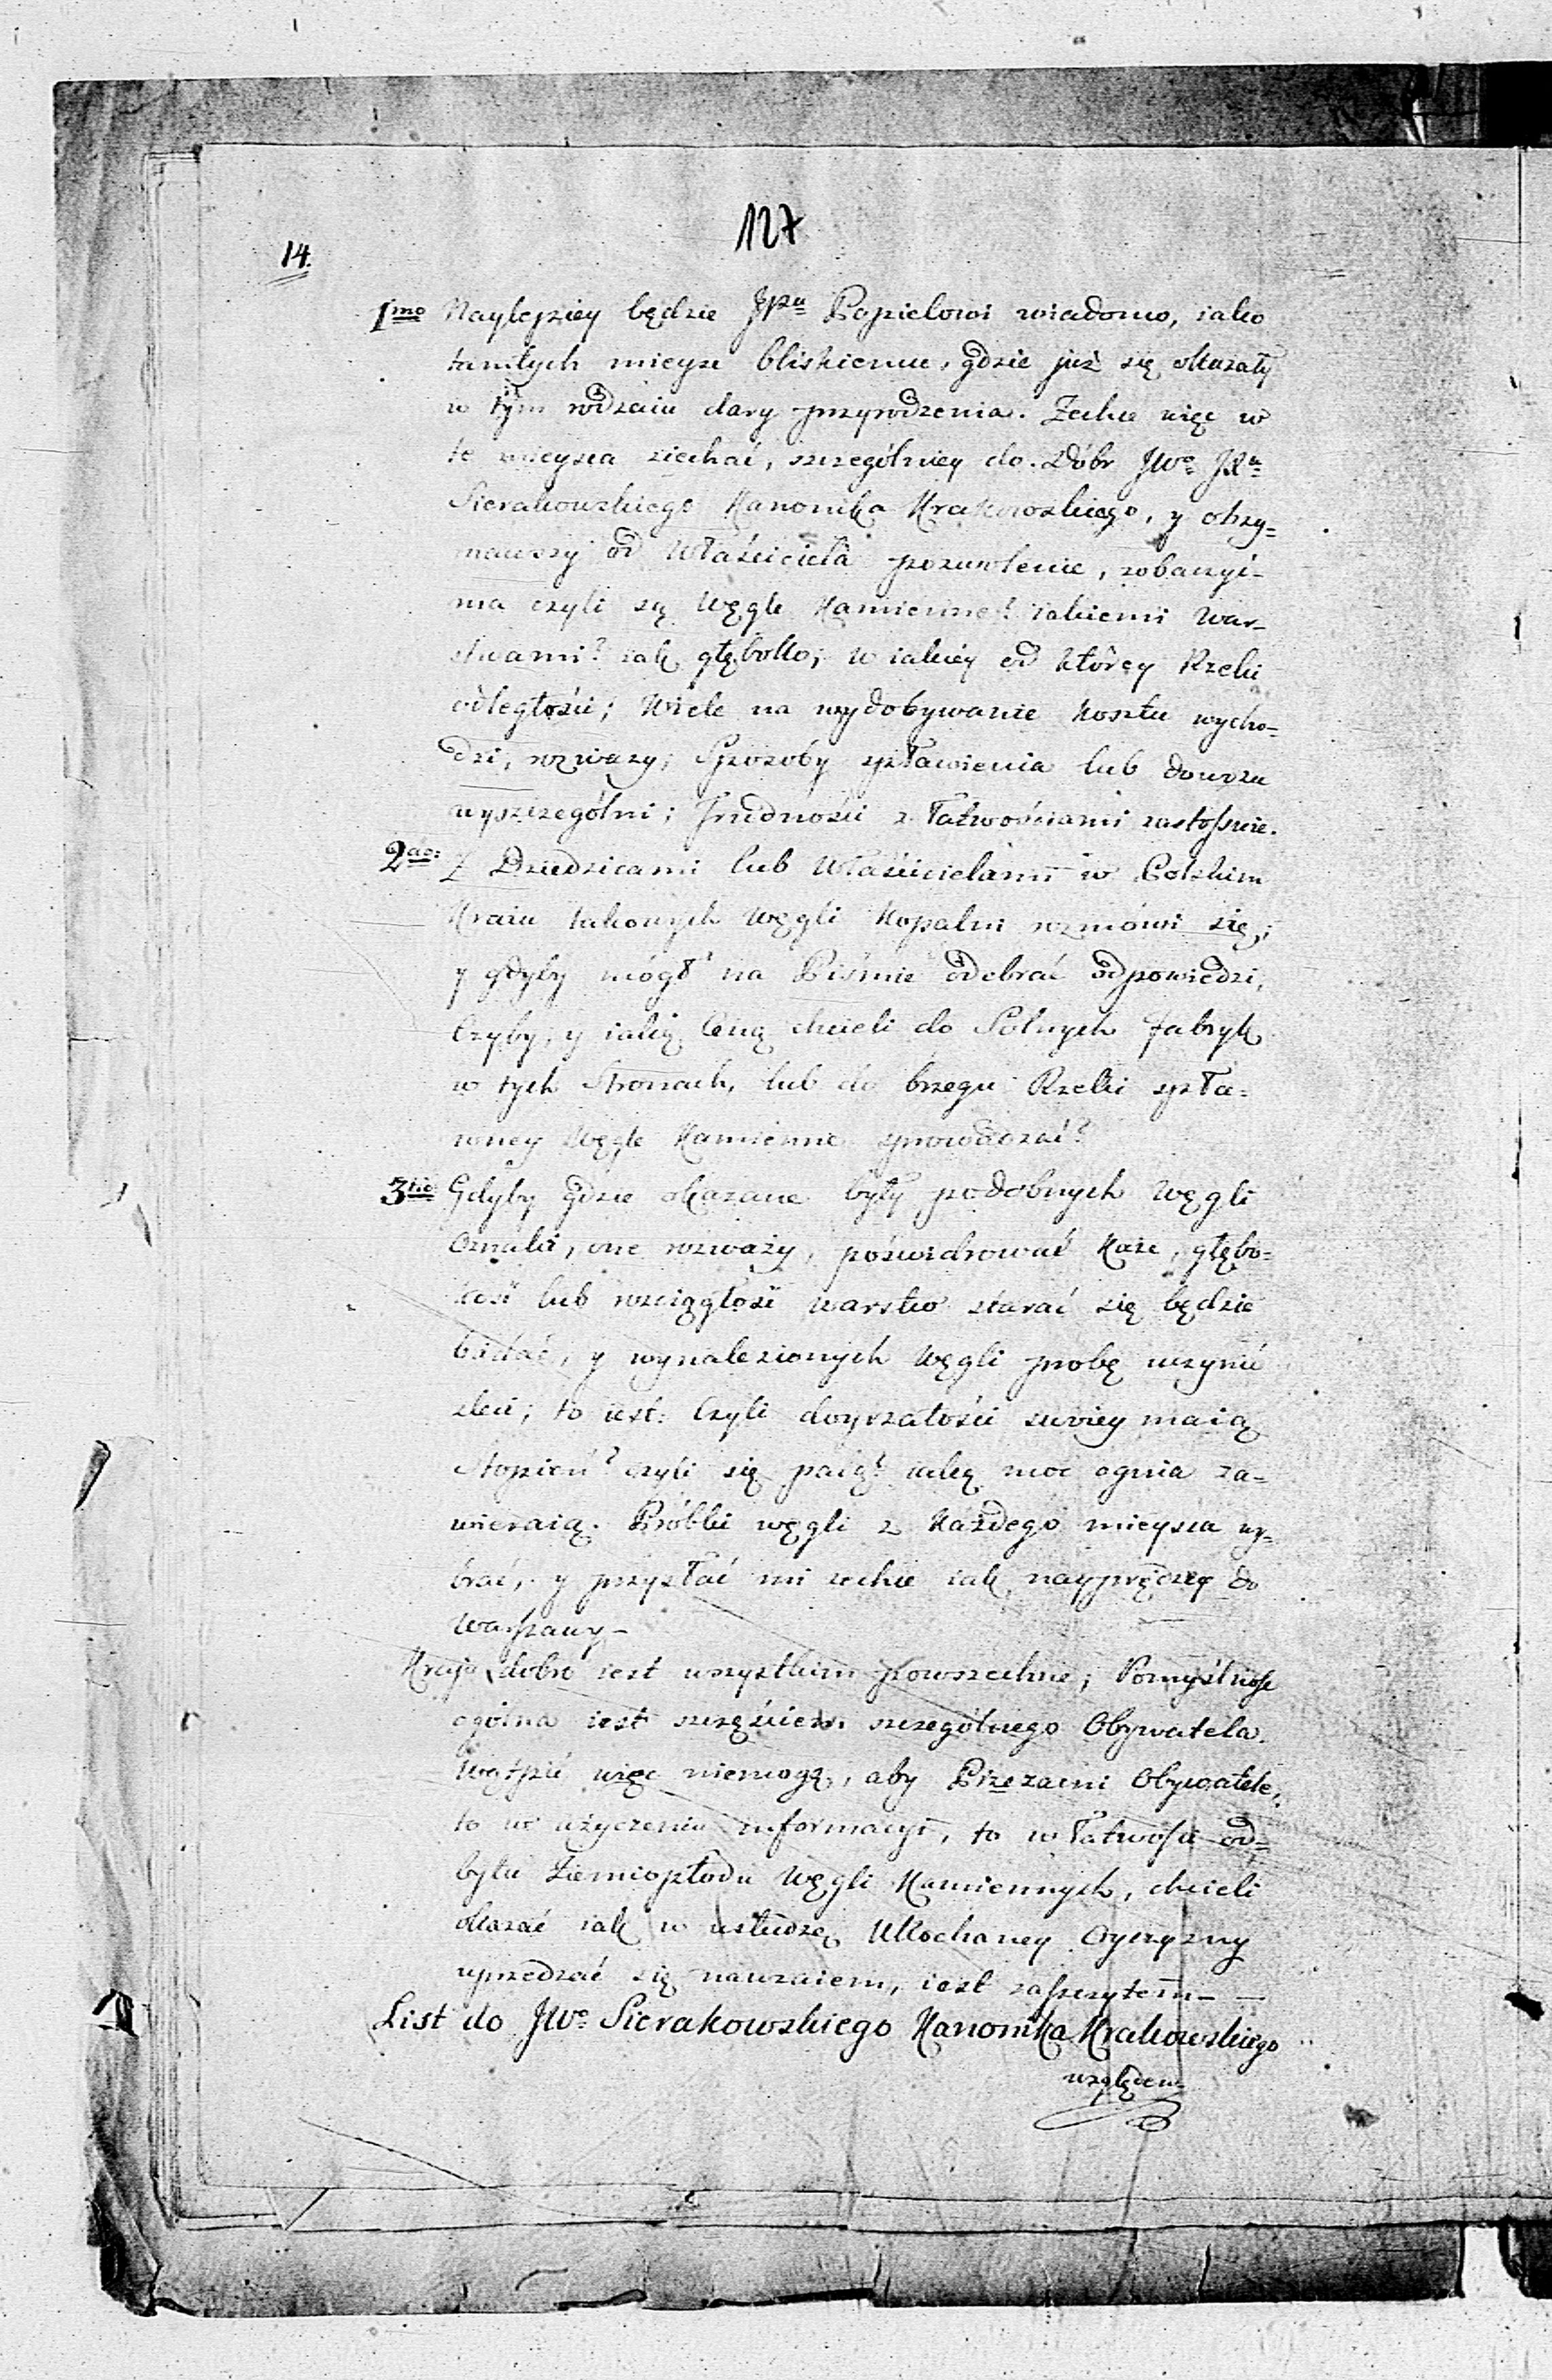 127
14.
1mo Naylepiey będzie JPu Popielowi wiadomo, iako
tamtych mieysc bliskiemu, gdzie już się okazały
w tym rodzaiu dary przyrodzenia. Zechce więc w
te mieysca ziechać, szczególniey do Dóbr JWo JXa
Sierakowskiego Kanonika Krakowskiego, y otrzy=
mawszy od Właściciela pozwolenie, zobaczyć
ma czyli są Węgle Kamienne? iakiemi War=
stwami? iak głęboko; w iakiey od którey Rzeki
odległości; Wiele na wydobywanie Kosztu wycho=
dzi, rozważy; Sposoby spławienia lub dowozu
wyszczególni; Trudności z łatwościami zastosuie.
2do: Z Dziedzicami lub Właścicielami w Polskim
Kraiu takowych Węgli Kopalni rozmówi się;
y gdyby mógł na Piśmie odebrać odpowiedzi,
Czyby, y iaką Ceną chcieli do Solnych fabryk
w tych Stronach, lub do brzegu Rzeki spła=
wney Węgle Kamienne sprowadzać?
3tio Gdyby gdzie okazane były podobnych Węgli
Oznaki, one rozważy, poświdrować Każe, głębo=
kość lub rozciągłość warstw starać się będzie
badać, y wynalezionych Węgli probę uczynić
zleci; to iest: Czyli doyrzałości swoiey maią
Stopień? czyli się palą? iaką moc ognia za=
wieraią. Próbki węgli z Każdego mieysca wy=
brać, y przysłać mi zechce iak nayprędzey do
Warszawy –
Kraju dobro iest wszystkim powszechne; Pomyślność
ogólna iest szczęściem szczególnego Obywatela.
Wątpić więc niemogę, aby Przezacni Obywatele,
to w użyczeniu informacyi, to w łatwości od=
bytu Ziemiopłodu Węgli Kamiennych, chcieli
okazać iak w usłudze Ukochaney Oyczyzny
uprzedzać się nawzaiem, iest zaszczytem –
List do JWo Sierakowskiego Kanonika Krakowskiego
względem